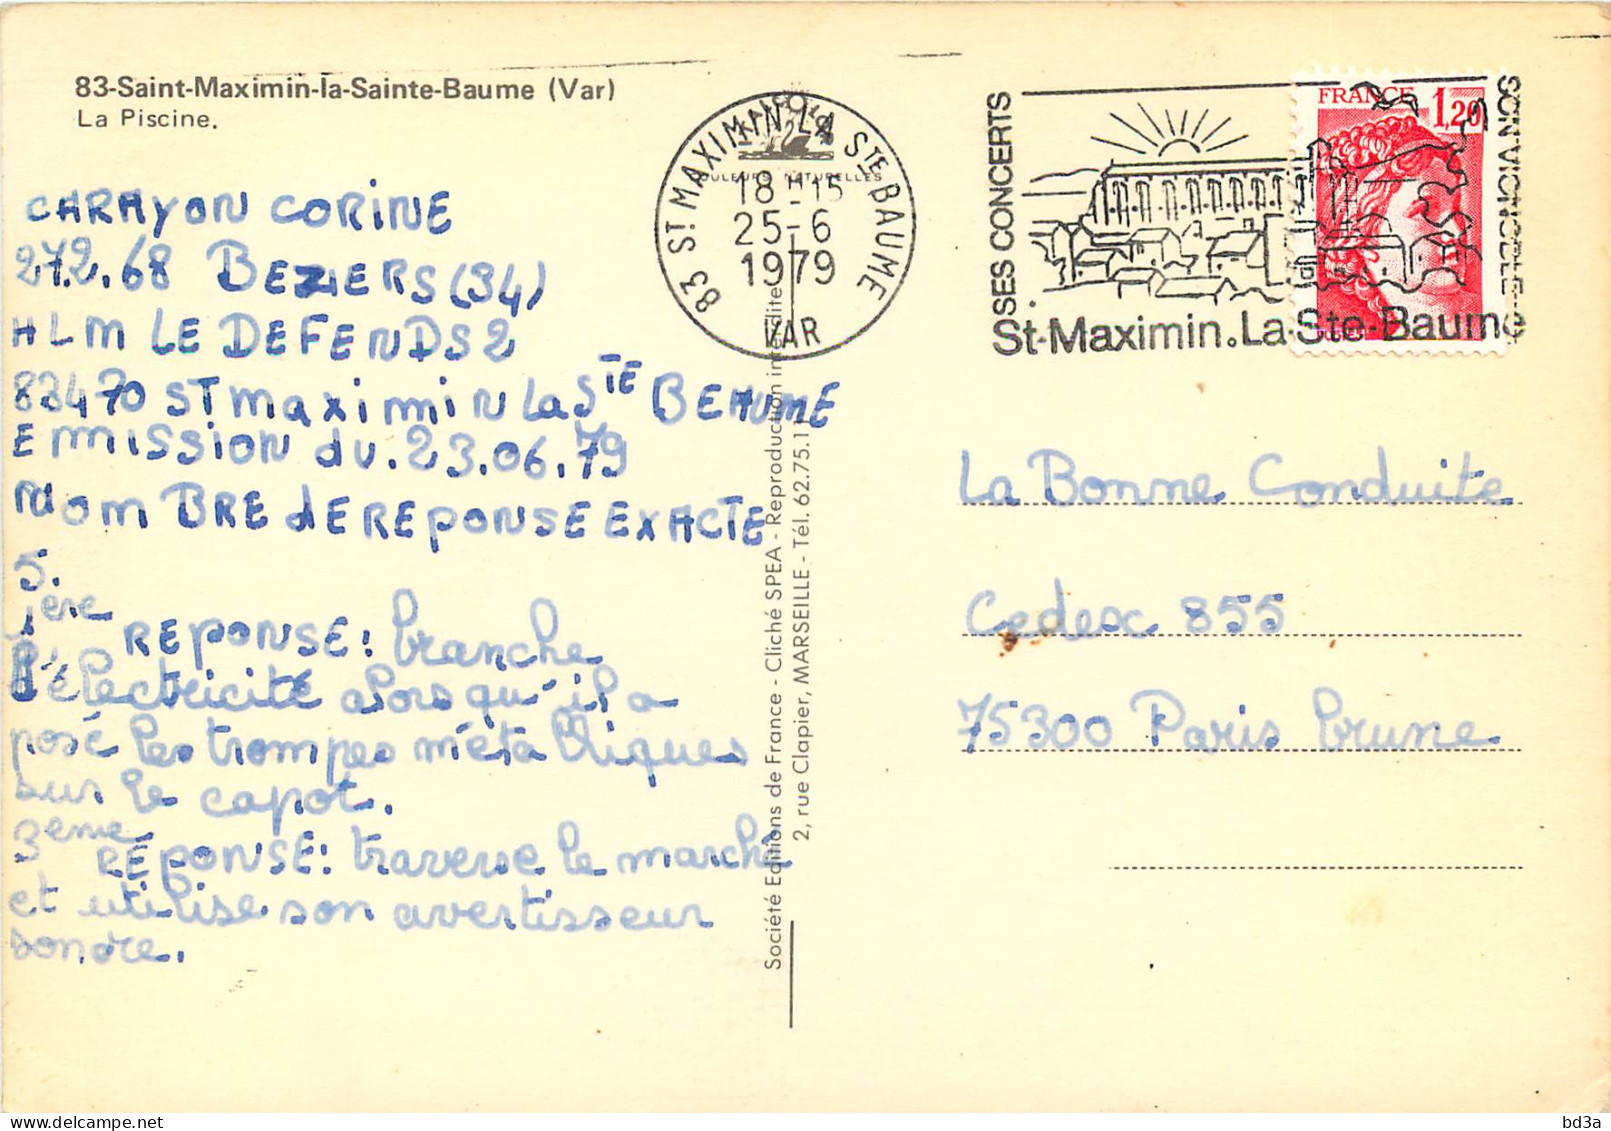 83-Saint-Maximin-la-Sainte-Baume (Var)
La Piscine.
CARAYON CORINE
27.2.68 BEZIERS (34)
HLM LE DEFENDS 2
83470 ST maximin La STE BEAUME
Emission du. 23.06.79
NOMBRE dE REPONSE EXACTE
5.
1ère
REPONSE: branche
l'électricité alors qu'il a
posé les trompes métalliques
sur le capot.
3ème
RÉPONSE: traverse le marché
et utilise son avertisseur
sonore.
COULEURS NATURELLES
83 ST MAXIMIN-LA STE BAUME
18 H 15
25-6
1979
VAR
Société Editions de France - Cliché SPEA - Reproduction interdite
2, rue Clapier, MARSEILLE - Tél. 62.75.11
SES CONCERTS
St-Maximin.La-Ste-Baume
FRANCE 1,20
La Bonne Conduite
Cedex 855
75300 Paris brune
delcampe.net
bd3a